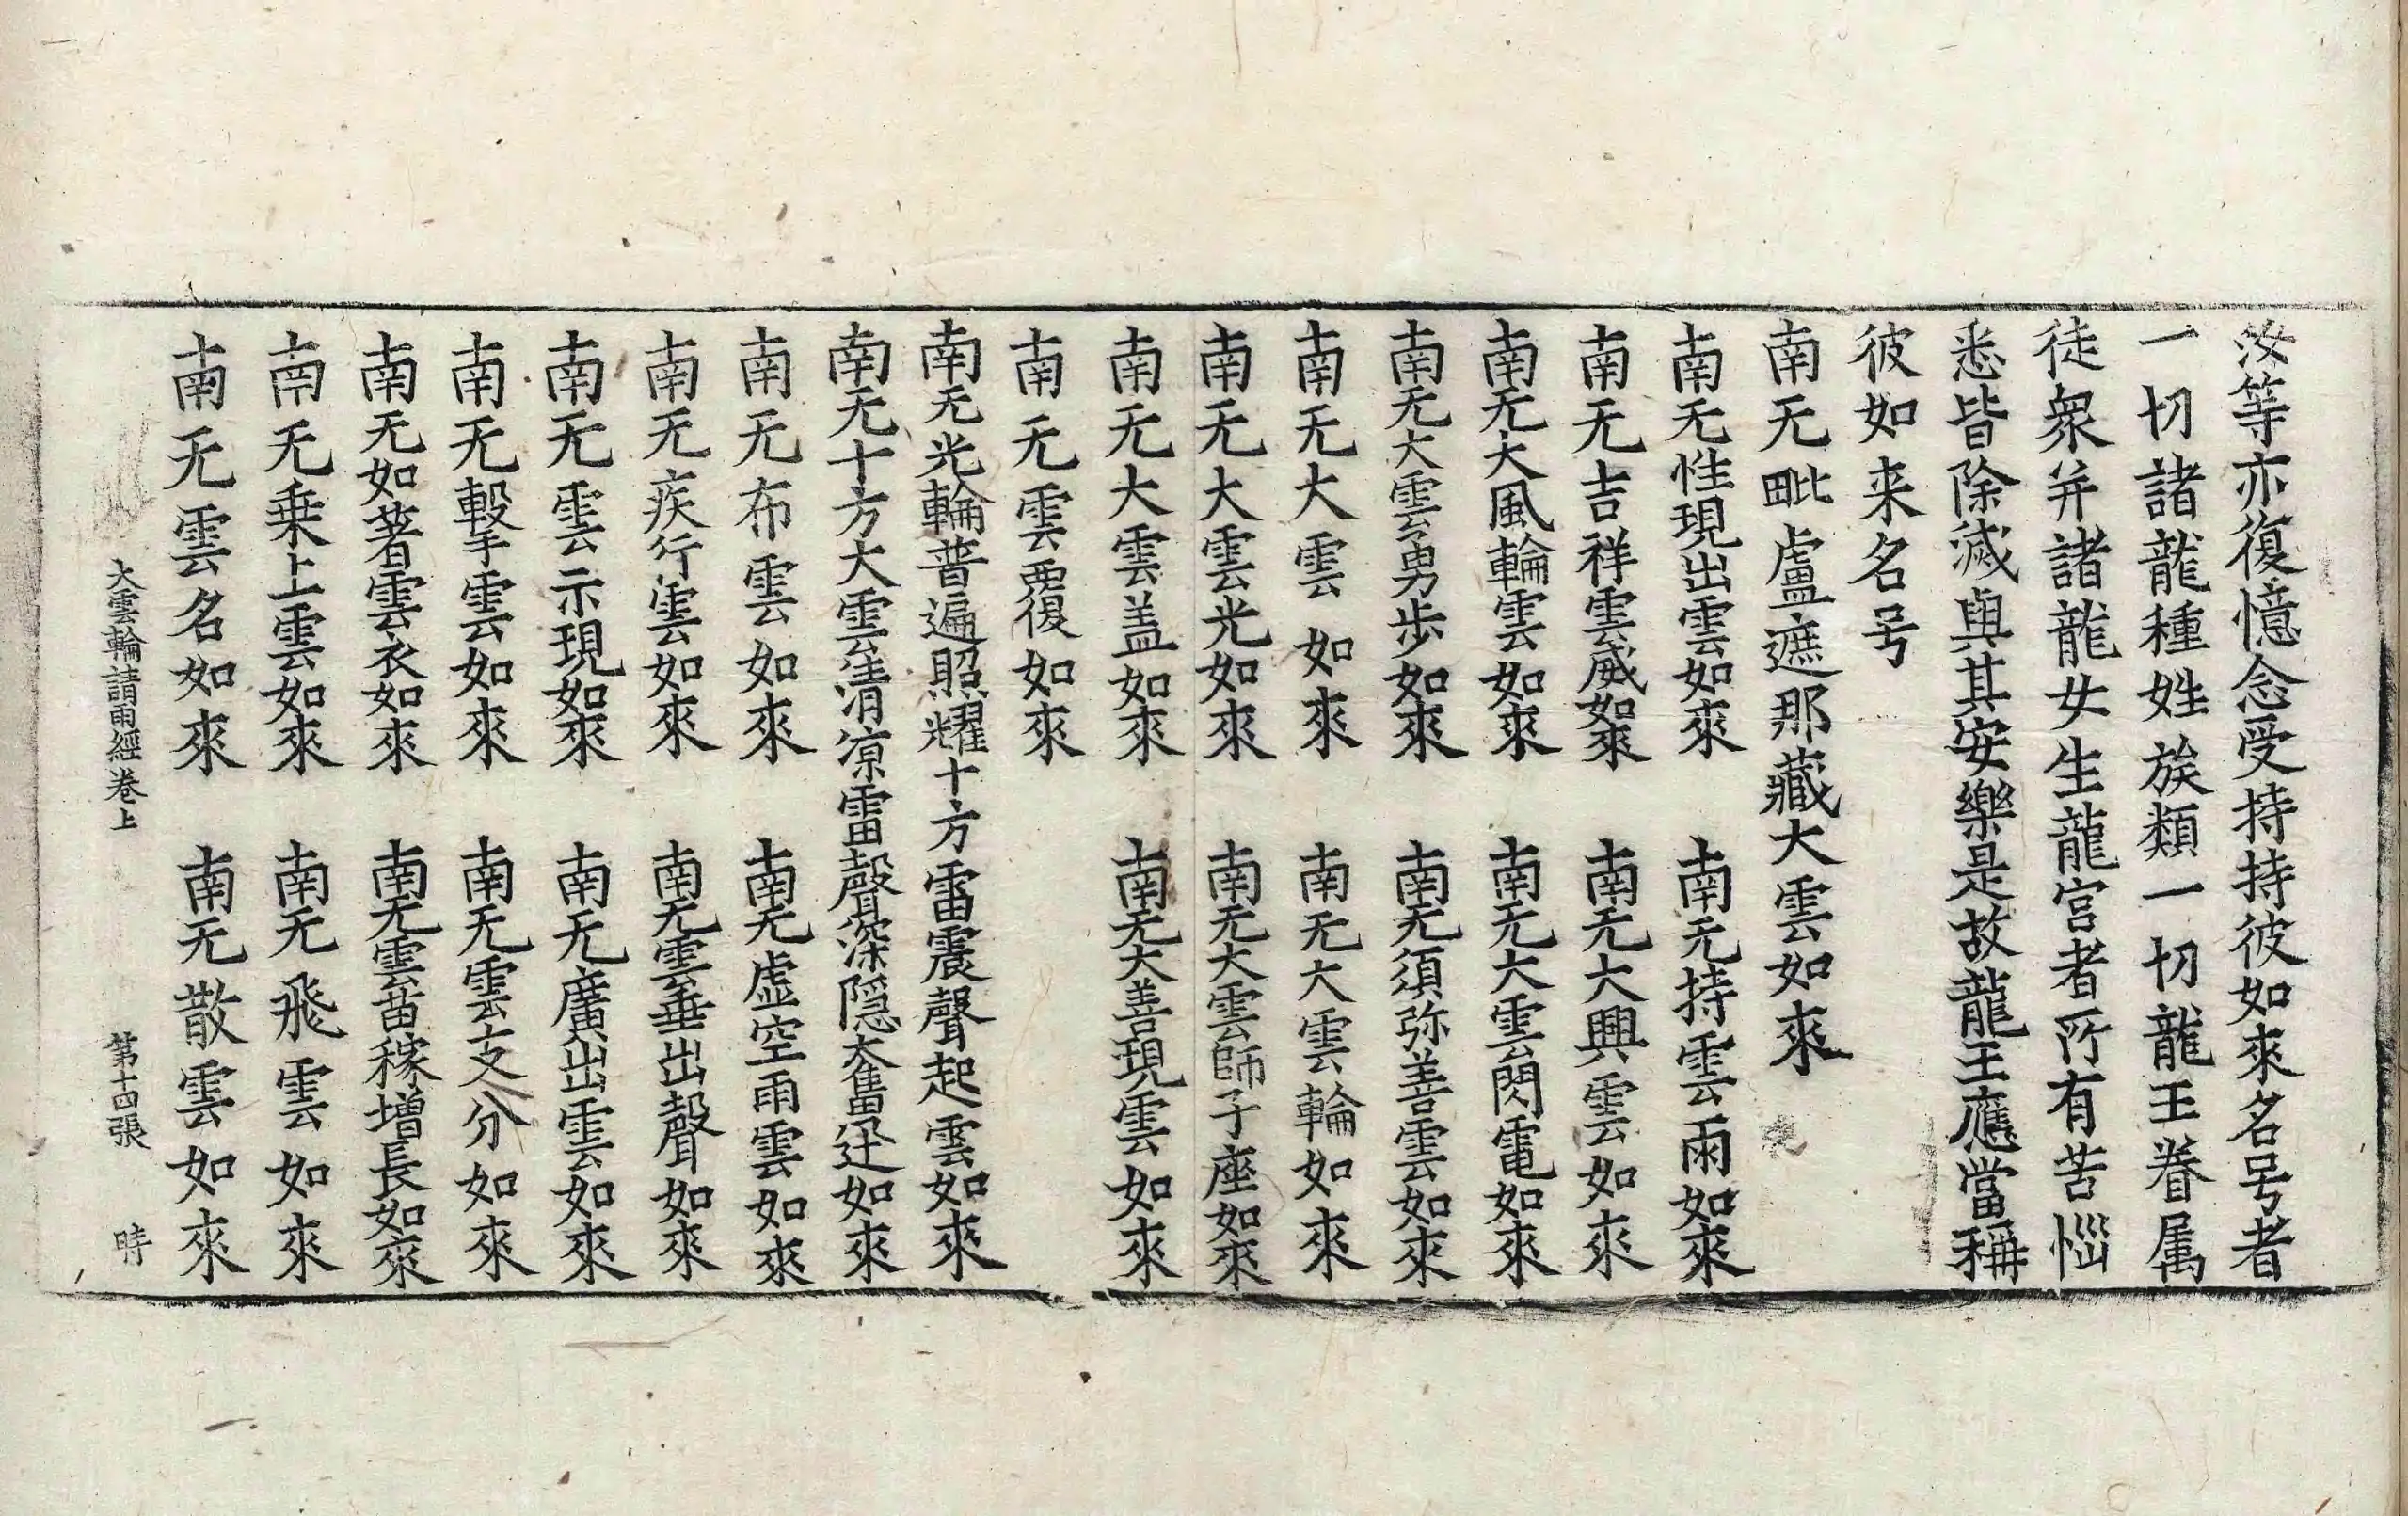 汝等亦復憶念受持持彼如來名号者
一切諸龍種姓族類一切龍王眷属
徒衆并諸龍女生龍宮者所有苦惱
悉皆除滅與其安樂是故龍王應當稱
彼如来名号
南无毗盧遮那藏大雲如來
南无性現出雲如來　南无持雲雨如來
南无吉祥雲威如來　南无大興雲如來
南无大風輪雲如來　南无大雲閃電如來
南无大雲勇步如來　南无須弥善雲如來
南无大雲如來　南无大雲輪如來
南无大雲光如來　南无大雲師子座如來
南无大雲盖如來　南无大善現雲如來
南无雲覆如來
南无光輪普遍照耀十方雷震聲起雲如來
南无十方大雲清涼雷聲深隱奮迅如來
南无布雲如來　南无虛空雨雲如來
南无疾行雲如來　南无雲垂出聲如來
南无雲示現如來　南无廣出雲如來
南无擊雲如來　南无雲支分如來
南无如著雲衣如來　南无雲苗稼增長如來
南无乗上雲如來　南无飛雲如來
南无雲名如來　南无散雲如來
大雲輪請雨經卷上　第十四張　時